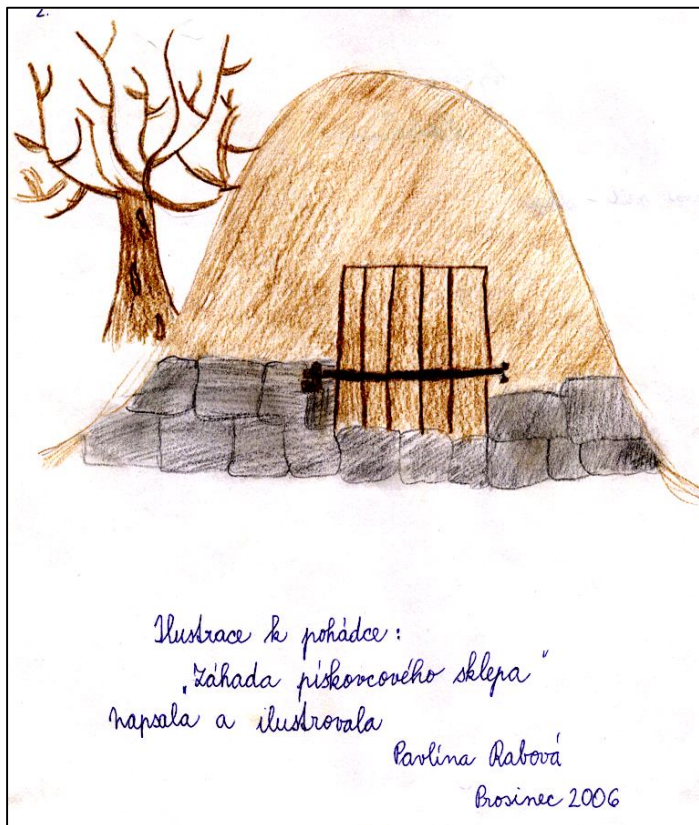 2.
Ilustrace k pohádce:
„Záhada pískovcového sklepa"
napsala a ilustrovala
Pavlína Rabová
Prosinec 2006